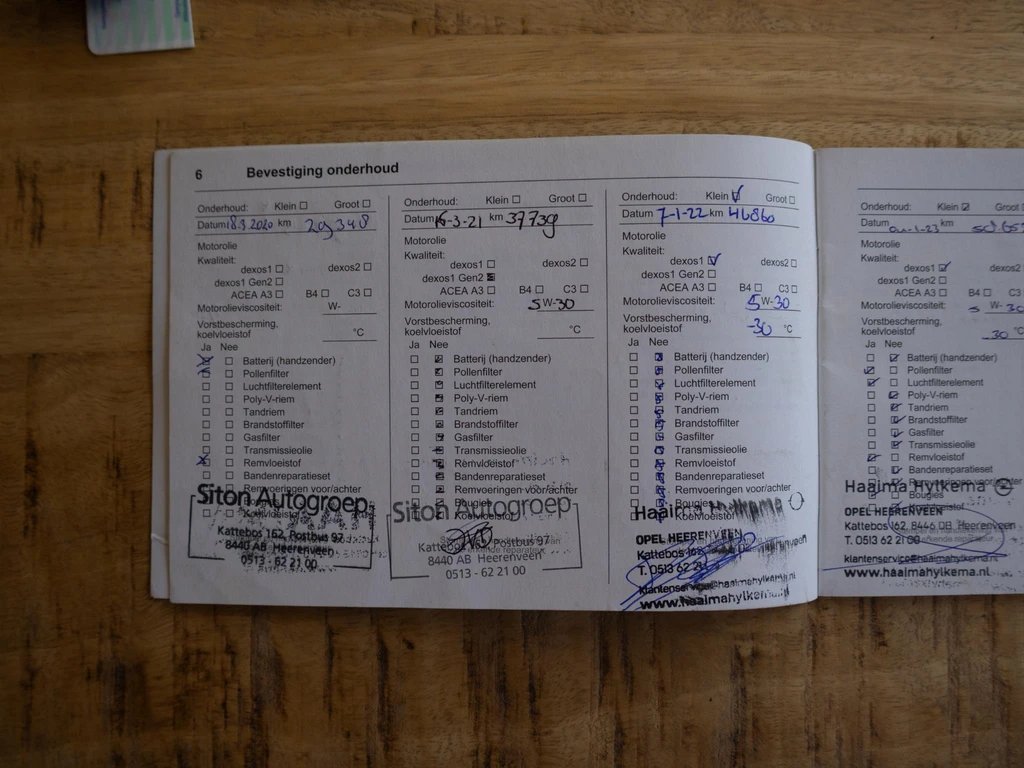 6 Bevestiging onderhoud
Onderhoud: Klein Groot
Datum 18.3.2020 km 29348
Motorolie
Kwaliteit:
dexos1 dexos2
dexos1 Gen2
ACEA A3 B4 C3
Motorolieviscositeit: W-
Vorstbescherming,
koelvloeistof °C
Ja Nee
Batterij (handzender)
Pollenfilter
Luchtfilterelement
Poly-V-riem
Tandriem
Brandstoffilter
Gasfilter
Transmissieolie
Remvloeistof
Bandenreparatieset
Remvoeringen voor/achter
Siton Autogroep
Kattebos 162, Postbus 97
8440 AB Heerenveen
0513 - 62 21 00
Onderhoud: Klein Groot
Datum 16-3-21 km 37739
Motorolie
Kwaliteit:
dexos1 dexos2
dexos1 Gen2
ACEA A3 B4 C3
Motorolieviscositeit: 5 W-30
Vorstbescherming,
koelvloeistof °C
Ja Nee
Batterij (handzender)
Pollenfilter
Luchtfilterelement
Poly-V-riem
Tandriem
Brandstoffilter
Gasfilter
Transmissieolie
Remvloeistof
Bandenreparatieset
Remvoeringen voor/achter
Bougies
Siton Autogroep
Koelvloeistof
Kattebos 162, Postbus 97
8440 AB Heerenveen
0513 - 62 21 00
Onderhoud: Klein Groot
Datum 7-1-22 km 46860
Motorolie
Kwaliteit:
dexos1 dexos2
dexos1 Gen2
ACEA A3 B4 C3
Motorolieviscositeit: 5 W-30
Vorstbescherming,
koelvloeistof -30 °C
Ja Nee
Batterij (handzender)
Pollenfilter
Luchtfilterelement
Poly-V-riem
Tandriem
Brandstoffilter
Gasfilter
Transmissieolie
Remvloeistof
Bandenreparatieset
Remvoeringen voor/achter
Bougies
Koelvloeistof
OPEL HEERENVEEN
Kattebos
T. 0513 62
klantenservice@haaimahylkema.nl
www.haaimahylkema.nl
Onderhoud: Klein Groot
Datum km
Motorolie
Kwaliteit:
dexos1 dexos2
dexos1 Gen2
ACEA A3 B4 C3
Motorolieviscositeit: 5 W-30
Vorstbescherming,
koelvloeistof 30 °C
Ja Nee
Batterij (handzender)
Pollenfilter
Luchtfilterelement
Poly-V-riem
Tandriem
Brandstoffilter
Gasfilter
Transmissieolie
Remvloeistof
Bandenreparatieset
Haaima Hylkema
Bougies
OPEL HEERENVEEN
Kattebos 162, 8446 DB Heerenveen
T. 0513 62 21 00
klantenservice@haaimahylkema.nl
www.haaimahylkema.nl